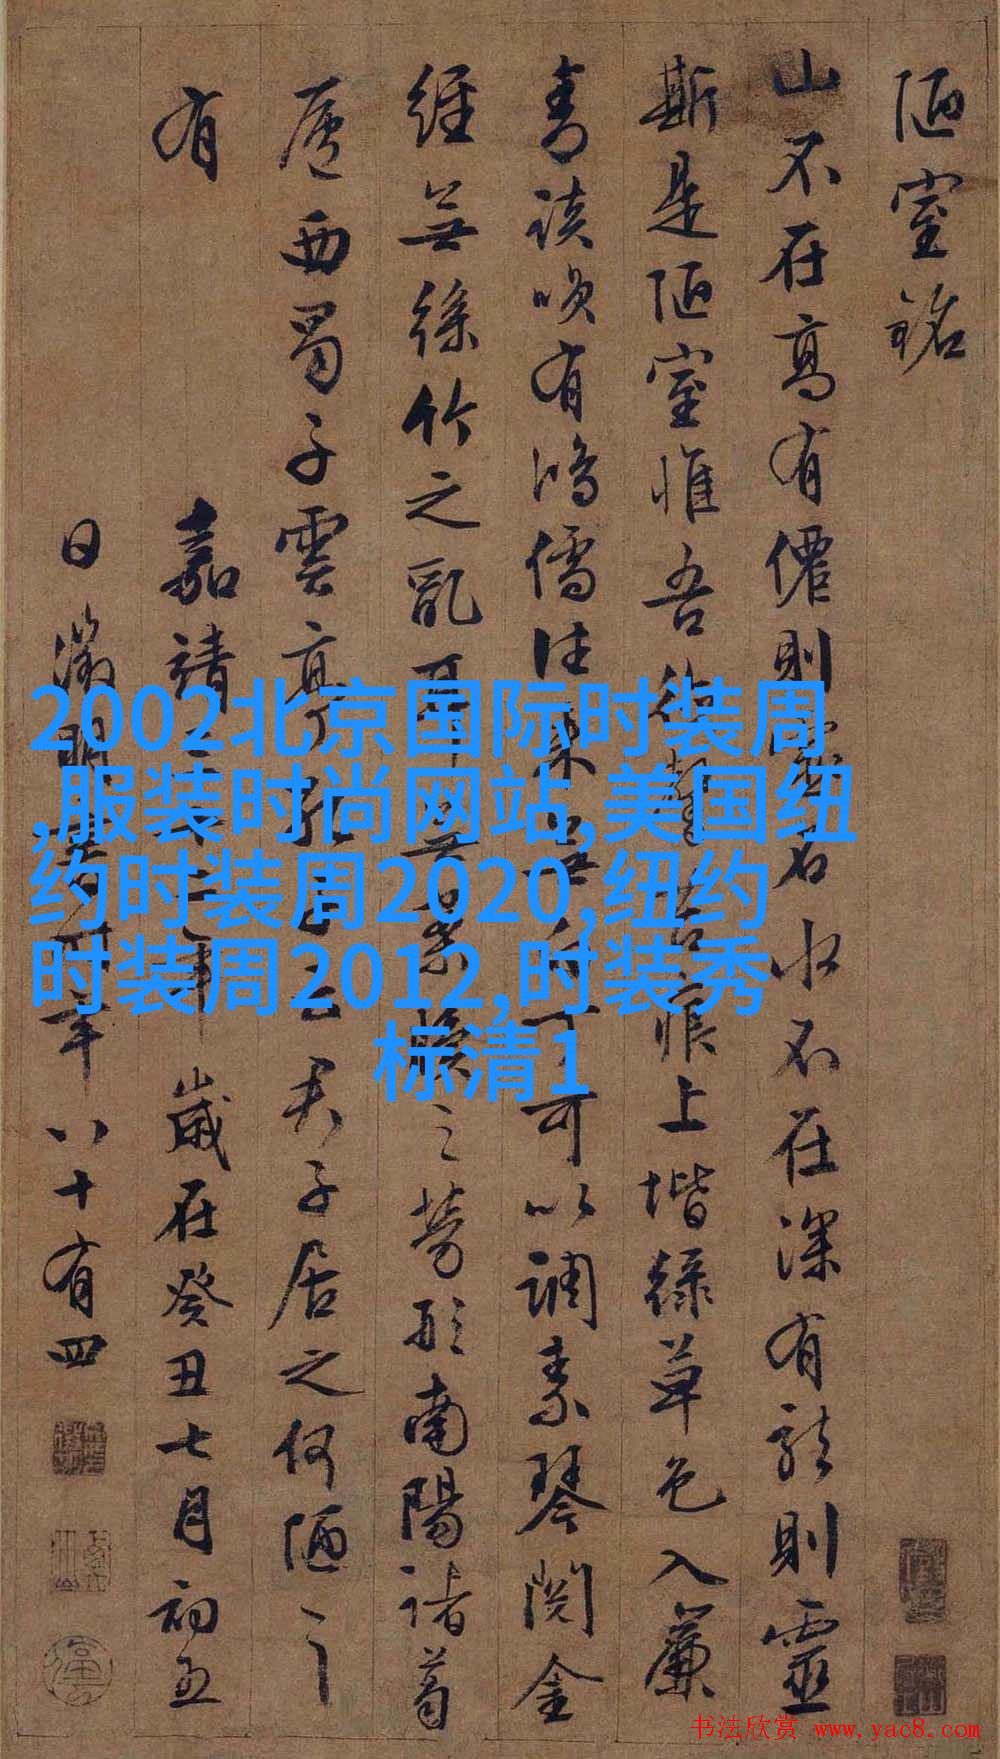 陋室銘
山不在高有僊則名水不在深有龍則靈
斯是陋室惟吾德馨苔痕上堦緑草色入簾
青談咲有鴻儒往來無白丁可以調素琴閱金
經無絲竹之亂耳無案牘之勞形南陽諸葛
廬西蜀子雲亭孔子云君子居之何陋之
有
嘉靖三十二年歲在癸丑七月初五
日徵明書時年八十有四
2002北京国际时装周
,服装时尚网站,美国纽
约时装周2020,纽约
时装周2012,时装秀
标清1
书法欣赏 www.yac8.com